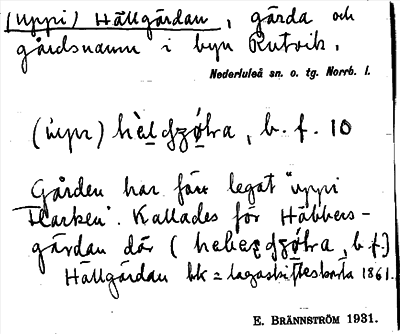 (Uppi) Hällgårdan, gärda och
gårdsnamn i byn Rutvik.
Nederluleå sn. o. tg. Norrb. l.
b. f. 10
Gården har förr legat "uppi
Backen". Kallades för Häbbers-
gårdan där ( b. f.)
Hällgårdan bk = lagaskifteskarta 1861.
E. BRÄNNSTRÖM 1931.